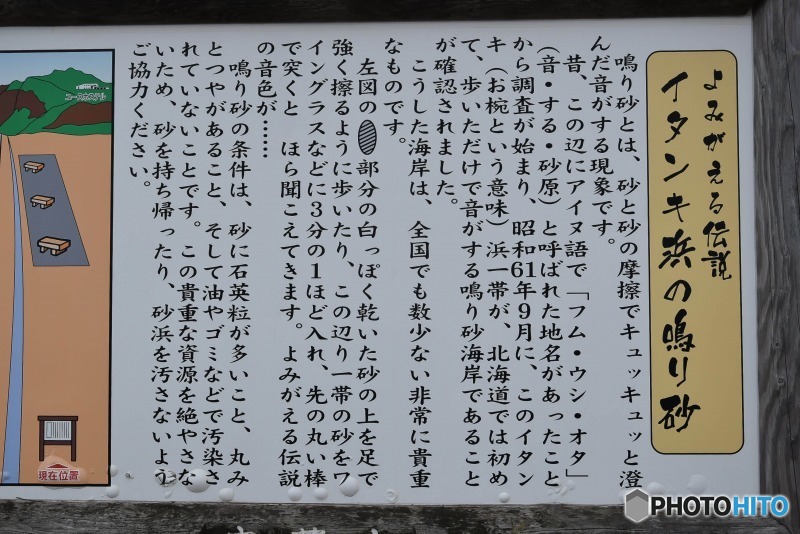 よみがえる伝説
イタンキ浜の鳴り砂
鳴り砂とは、砂と砂の摩擦でキュッキュッと澄
んだ音がする現象です。
昔、この辺にアイヌ語で「フム・ウシ・オタ」
（音・する・砂原）と呼ばれた地名があったこと
から調査が始まり、昭和61年9月に、このイタン
キ（お椀という意味）浜一帯が、北海道では初め
て、歩いただけで音がする鳴り砂海岸であること
が確認されました。
こうした海岸は、全国でも数少ない非常に貴重
なものです。
左図の部分の白っぽく乾いた砂の上を足で
強く擦るように歩いたり、この辺り一帯の砂をワ
イングラスなどに3分の1ほど入れ、先の丸い棒
で突くと ほら聞こえてきます。よみがえる伝説
の音色が……
鳴り砂の条件は、砂に石英粒が多いこと、丸み
とつやがあること、そして油やゴミなどで汚染さ
れていないことです。この貴重な資源を絶やさな
いため、砂を持ち帰ったり、砂浜を汚さないよう
ご協力ください。
ユースホステル
現在位置
PHOTOHITO